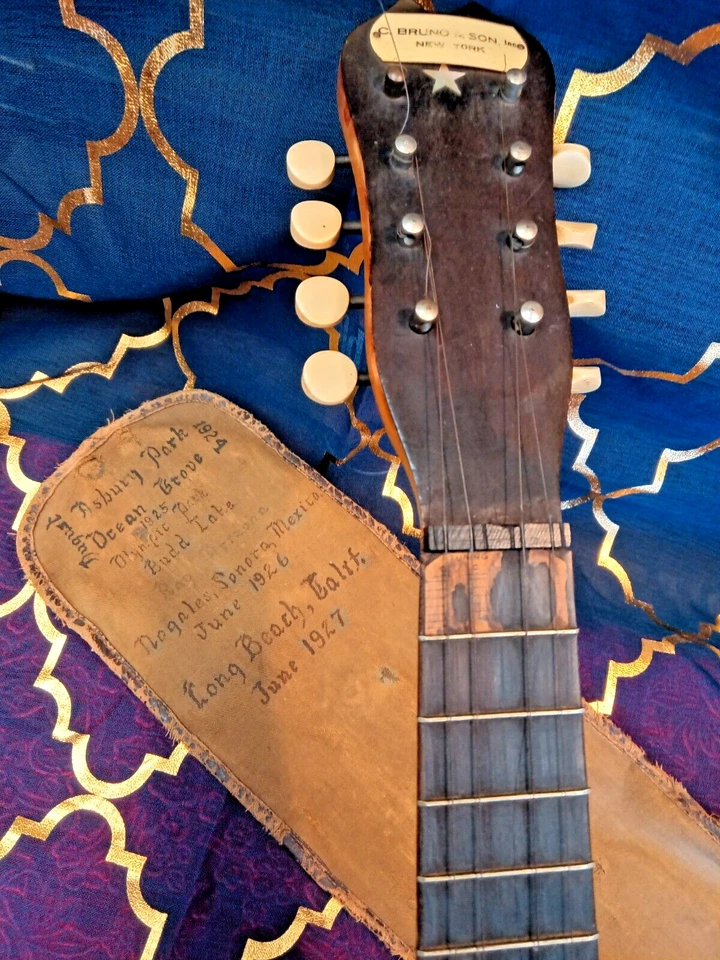 C. BRUNO & SON, Inc
NEW YORK
August 1924
Asbury Park
Ocean Grove
1925
Olympic Park
Budd Lake
Ray Arizona
Nogales, Sonora, Mexico
June 1926
Long Beach, Calif.
June 1927